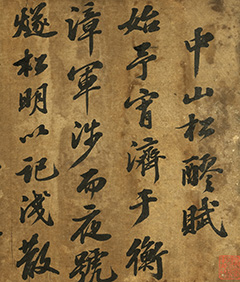 中山松醪賦
始予宵濟于衡
漳軍涉而夜號
燧松明以記淺散